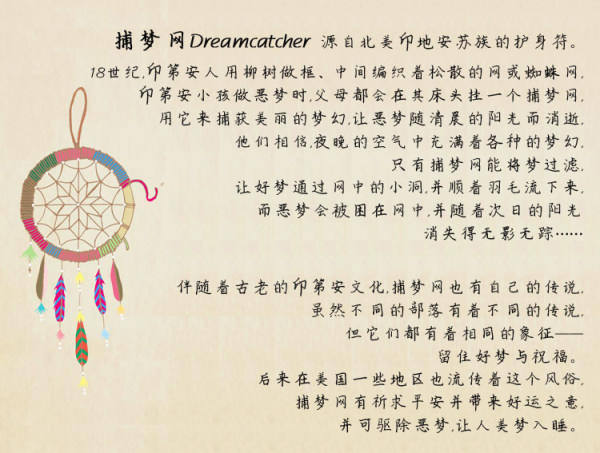 捕梦网Dreamcatcher 源自北美印地安苏族的护身符。
18世纪,印第安人用柳树做框、中间编织着松散的网或蜘蛛网,
印第安小孩做恶梦时,父母都会在其床头拄一个捕梦网,
用它来捕获美丽的梦幻,让恶梦随清晨的阳光而消逝,
他们相信,夜晚的空气中充满着各种的梦幻,
只有捕梦网能将梦过滤,
让好梦通过网中的小洞,并顺着羽毛流下来,
而恶梦会被困在网中,并随着次日的阳光
消失得无影无踪……
伴随着古老的印第安文化,捕梦网也有自己的传说,
虽然不同的部落有着不同的传说,
但它们都有着相同的象征——
留住好梦与祝福。
后来在美国一些地区也流传着这个风俗,
捕梦网有祈求平安并带来好运之意,
并可驱除恶梦,让人美梦入睡。